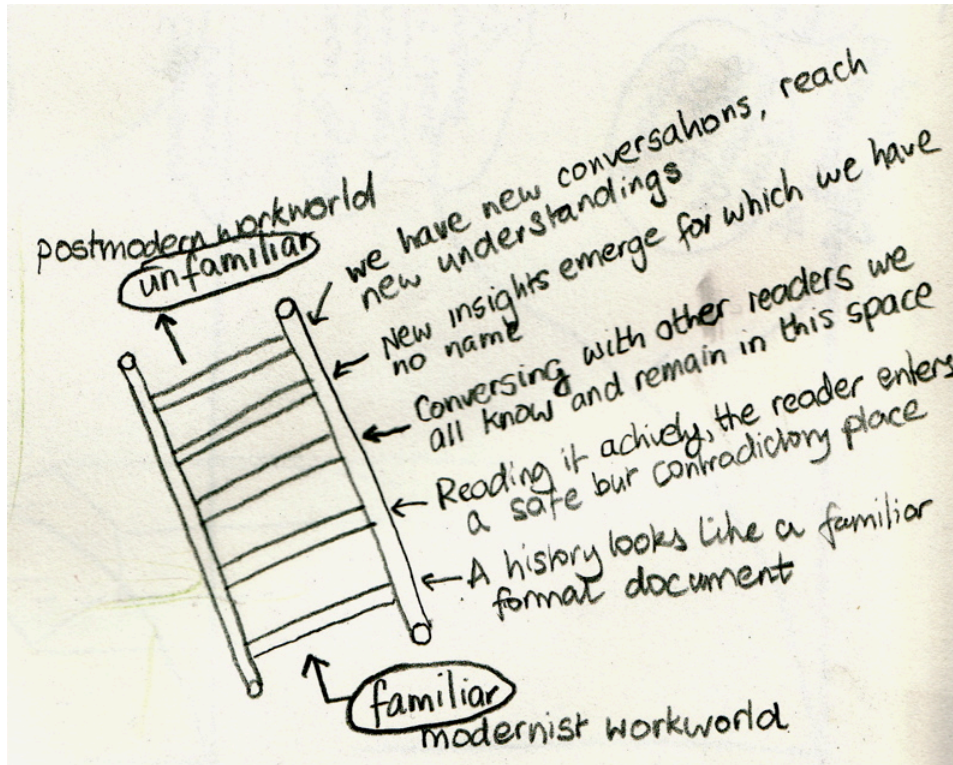 postmodern workworld
unfamiliar
we have new conversations, reach
new understandings
New insights emerge for which we have
no name
Conversing with other readers we
all know and remain in this space
Reading it actively, the reader enters
a safe but contradictory place
A history looks like a familiar
formal document
familiar
modernist workworld